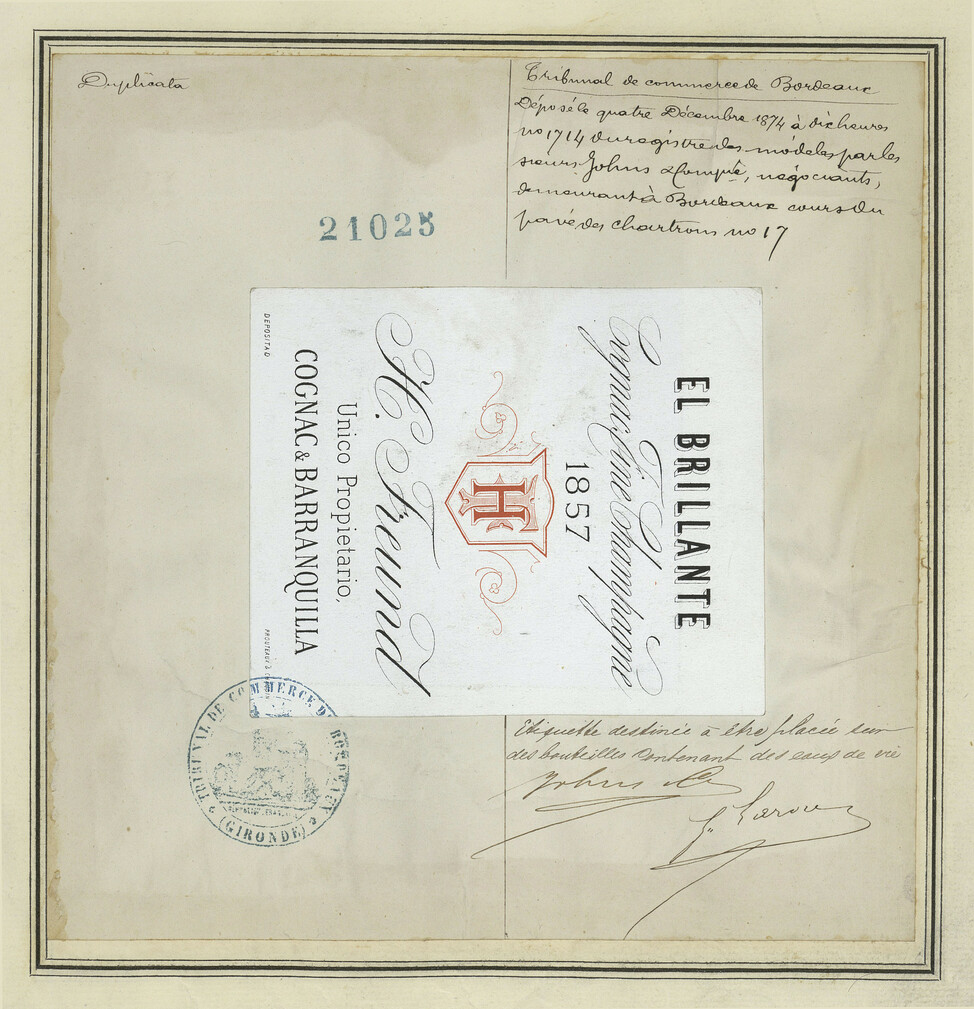 Duplicata
Tribunal de commerce de Bordeaux
Déposé le quatre Décembre 1874 à dix heures
no 1714 du registre des modèles par les
sieurs Johns & Compie, négociants,
demeurant à Bordeaux cours du
pavé des chartrons no 17
21025
EL BRILLANTE
Cognac Fine Champagne
1857
HF
H. Freund
Unico Propietario,
COGNAC & BARRANQUILLA
DEPOSITADO
Etiquette destinée à être placée sur
des bouteilles contenant des eaux de vie
Johns & Co
TRIBUNAL DE COMMERCE DE BORDEAUX
(GIRONDE)